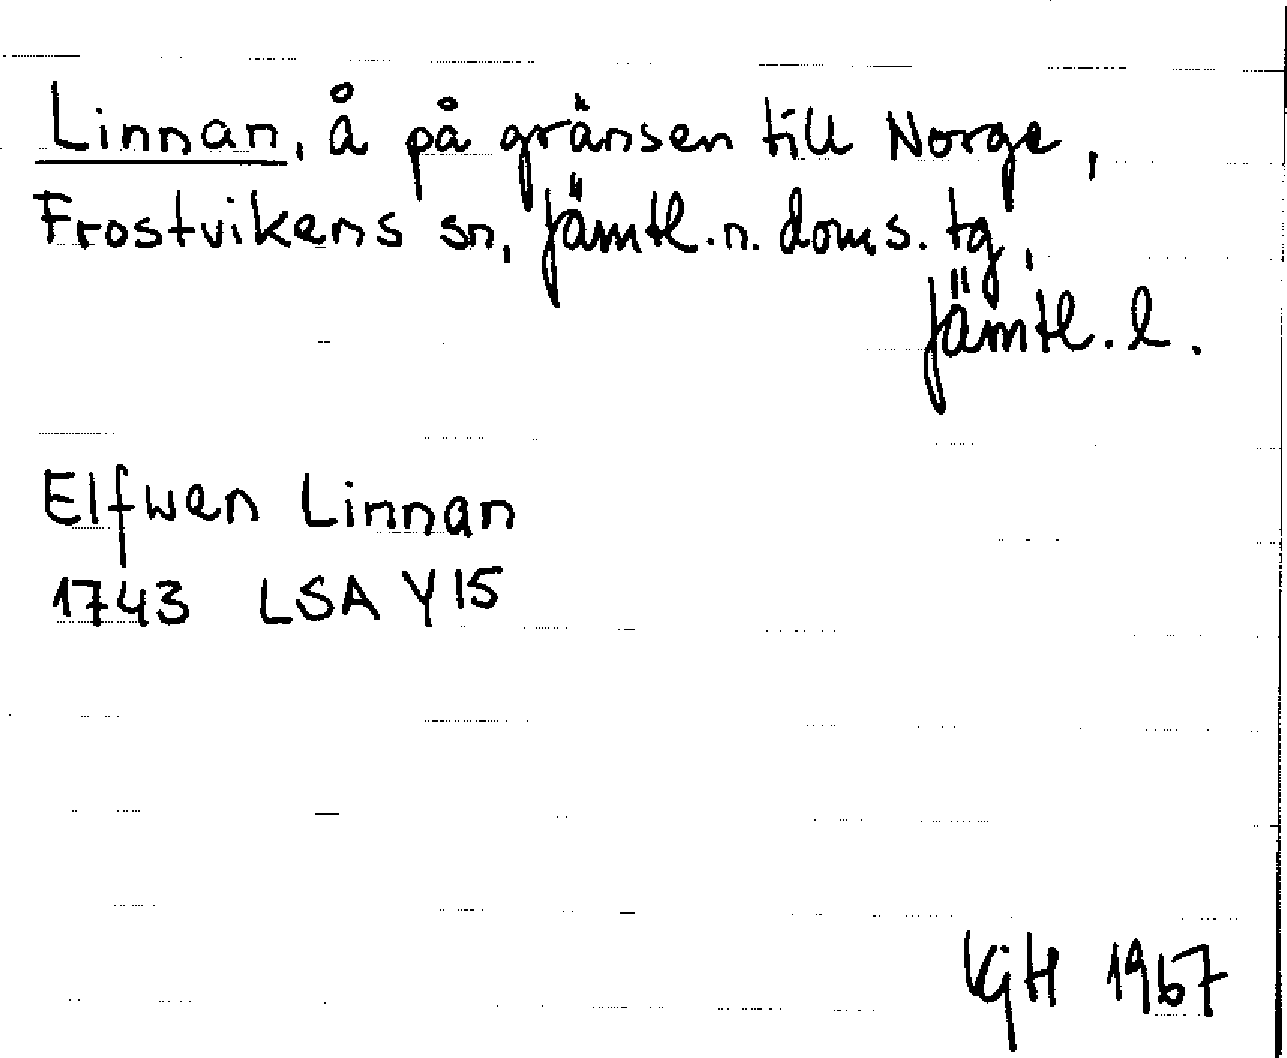 Linnan, å på gränsen till Norge,
Frostvikens sn, Jämtl. n. doms. tg,
Jämtl. l.
Elfwen Linnan
1743 LSA Y 15
VGH 1967